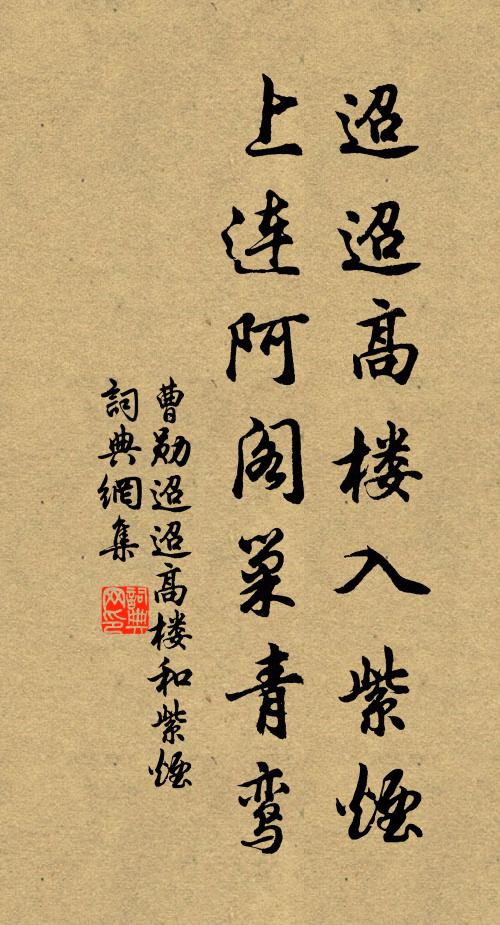 迢迢高楼入紫烟
上连阿阁巢青鸾
曹勋迢迢高楼和紫烟
詞典網集
詞典网印